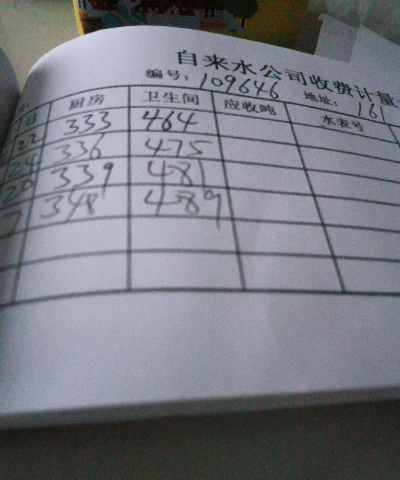 自来水公司收费计量
编号: 109646 地址: 161
厨房 卫生间 应收吨 水表号
22 333 464
24 336 475
339 481
7 348 489